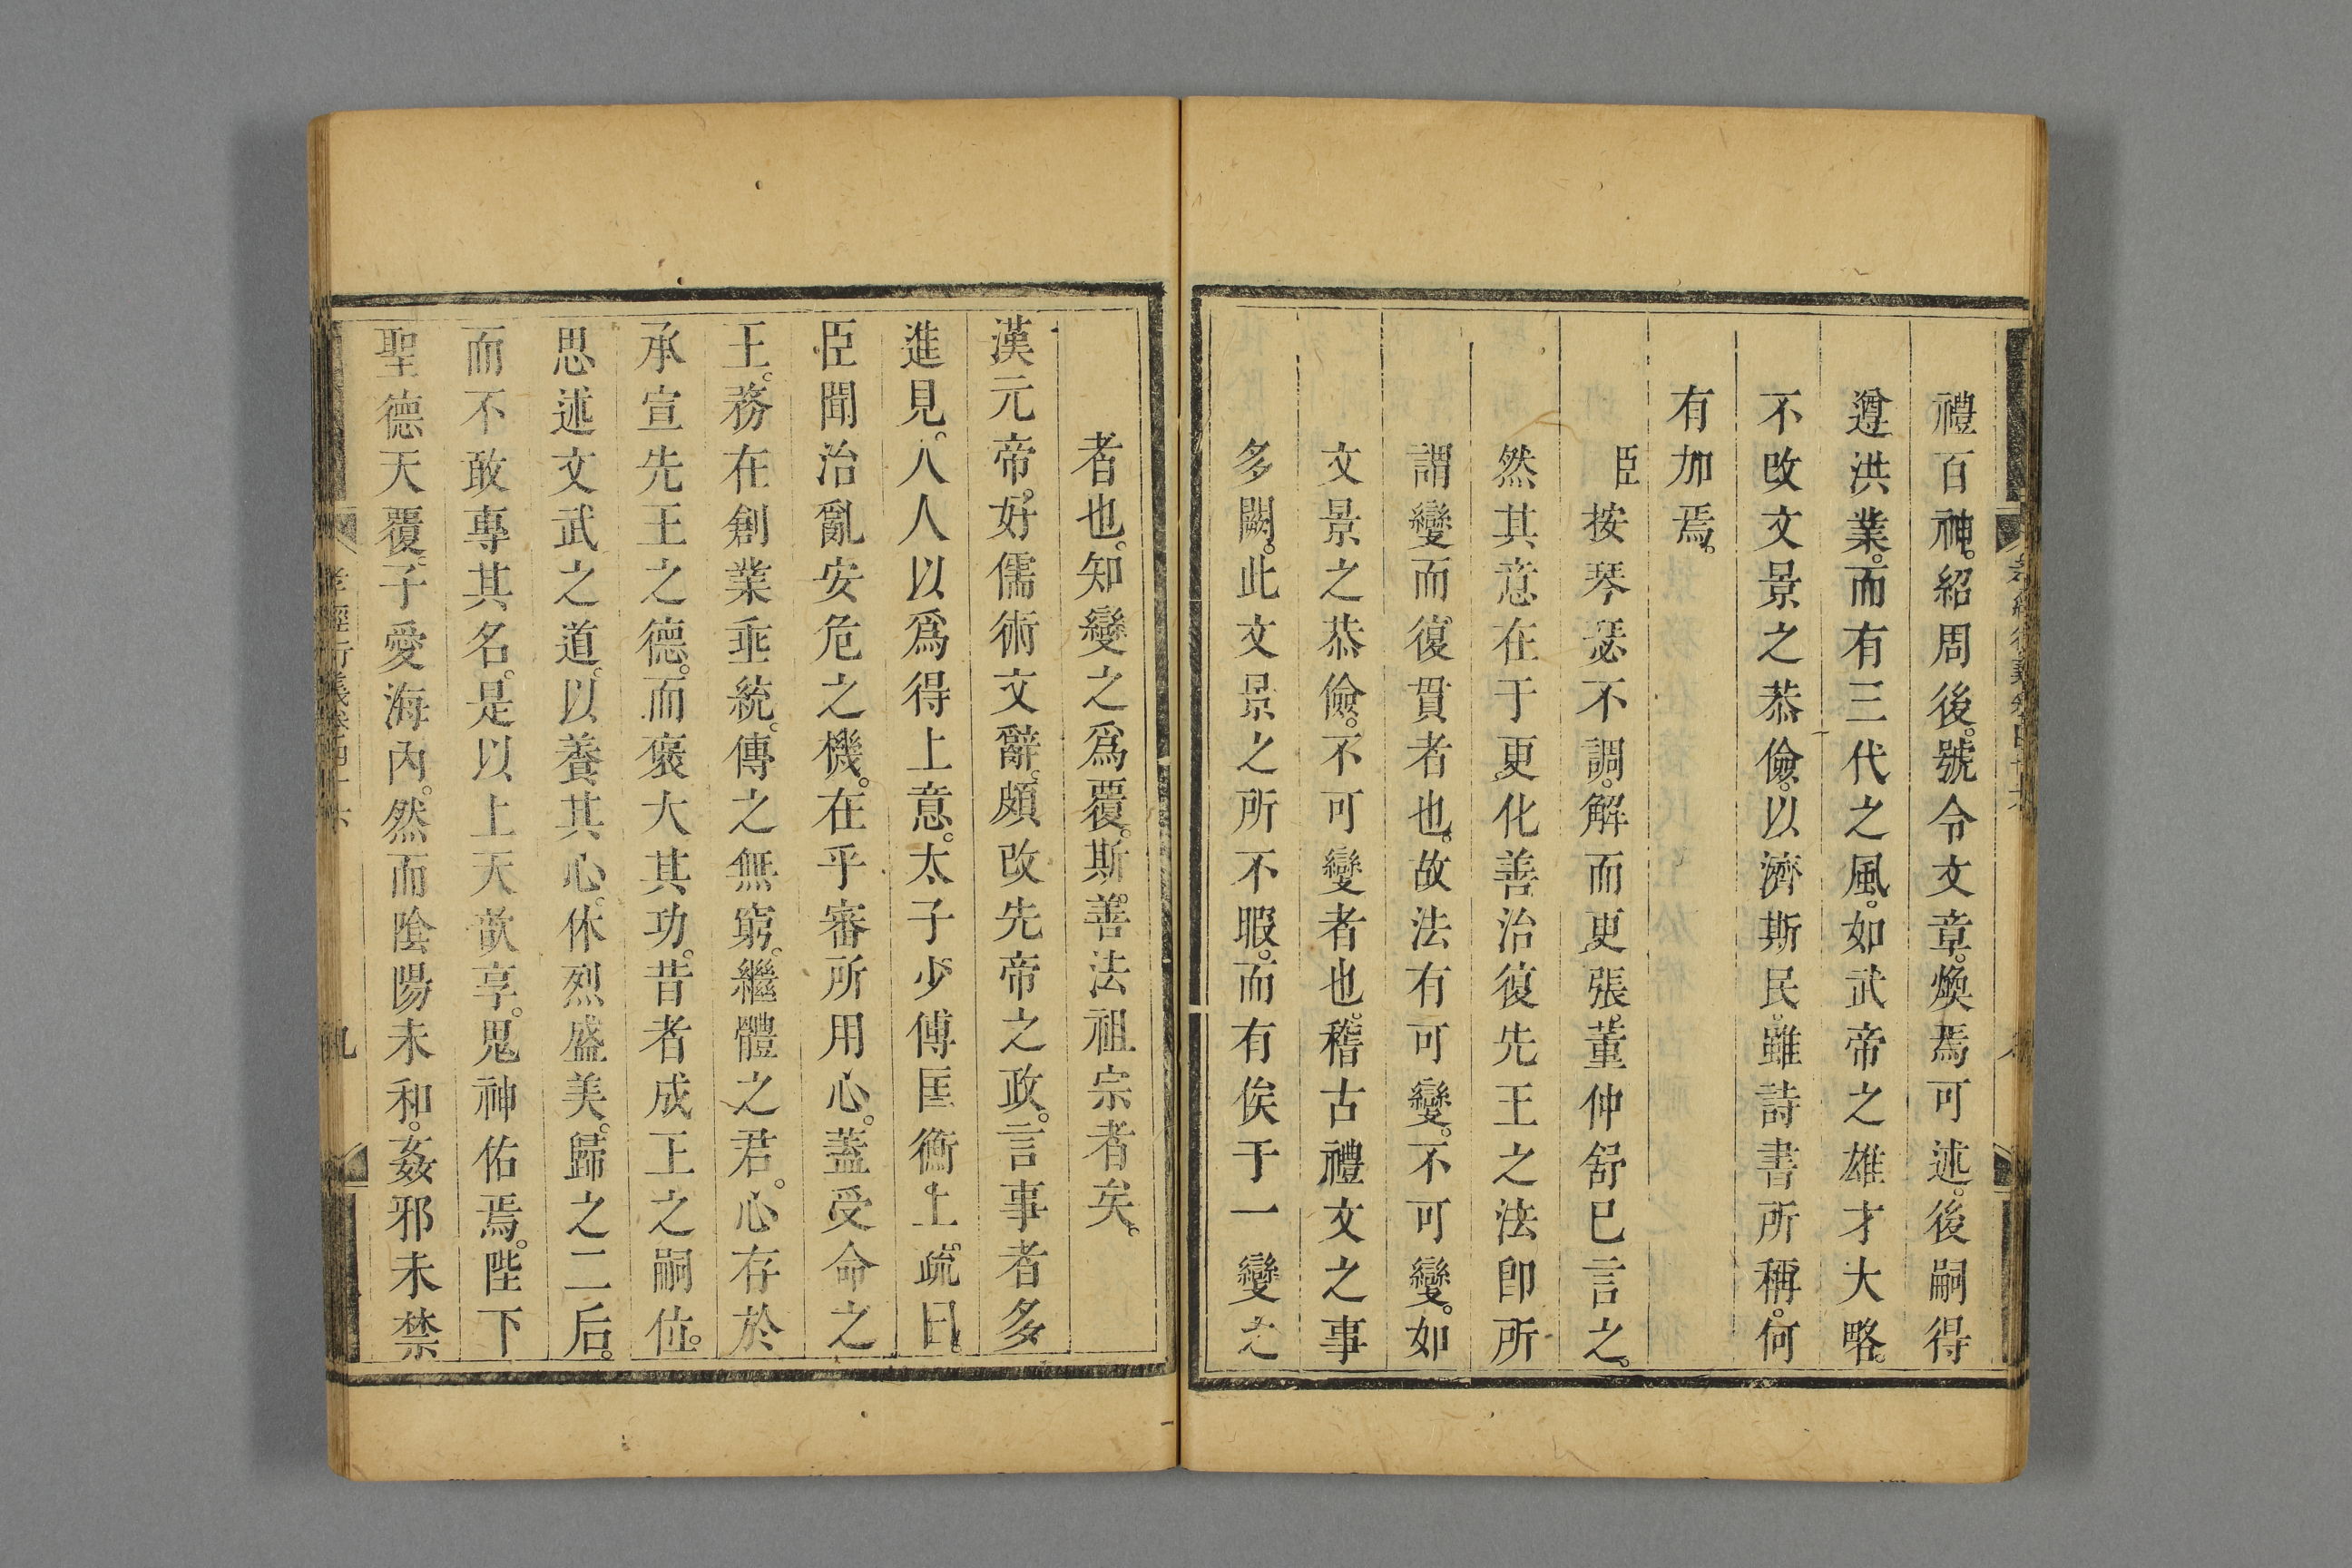 禮百神。紹周後。號令文章。煥焉可述。後嗣得
遵洪業。而有三代之風。如武帝之雄才大略。
不改文景之恭儉。以濟斯民。雖詩書所稱。何
有加焉。
臣按琴瑟不調。解而更張。董仲舒已言之。
然其意在于更化善治復先王之法卽所
謂變而復貫者也。故法有可變。不可變。如
文景之恭儉。不可變者也。稽古禮文之事
多闕。此文景之所不暇。而有俟于一變之
者也。知變之爲覆。斯善法祖宗者矣。
漢元帝。好儒術文辭。頗改先帝之政。言事者多
進見。人人以爲得上意。太子少傅匡衡。上疏曰。
臣聞治亂安危之機。在乎審所用心。蓋受命之
王。務在創業垂統。傳之無窮。繼體之君。心存於
承宣先王之德。而褒大其功。昔者成王之嗣位。
思述文武之道。以養其心。休烈盛美。歸之二后。
而不敢專其名。是以上天歆享。鬼神佑焉。陛下
聖德天覆。子愛海內。然而陰陽未和。姦邪未禁
孝經衍義卷四十六
九